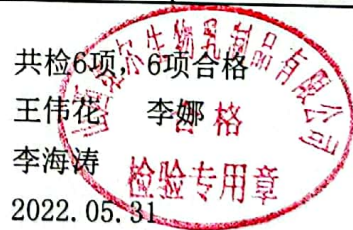 共检6项,6项合格
王伟花 李娜
李海涛
2022.05.31
尔生物乳制品有限公司
合格
检验专用章